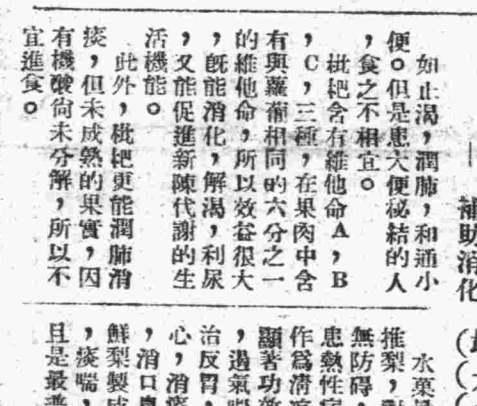 補助消化
如止渴，潤肺，和通小
便。但是患大便秘結的人
，食之不相宜。
枇杷含有維他命A，B
，C，三種，在果肉中含
有與蘿蔔相同的六分之一
的維他命，所以效益很大
，旣能消化，解渴，利尿
，又能促進新陳代謝的生
活機能。
此外，枇杷更能潤肺消
痰，但未成熟的果實，因
有機酸尚未分解，所以不
宜進食。
水菓
推梨，
無防礙
患熱性
作爲清
顯著功
，過氣
治反胃，
心，消
，消口
鮮梨製成
，痰喘，
且是最普